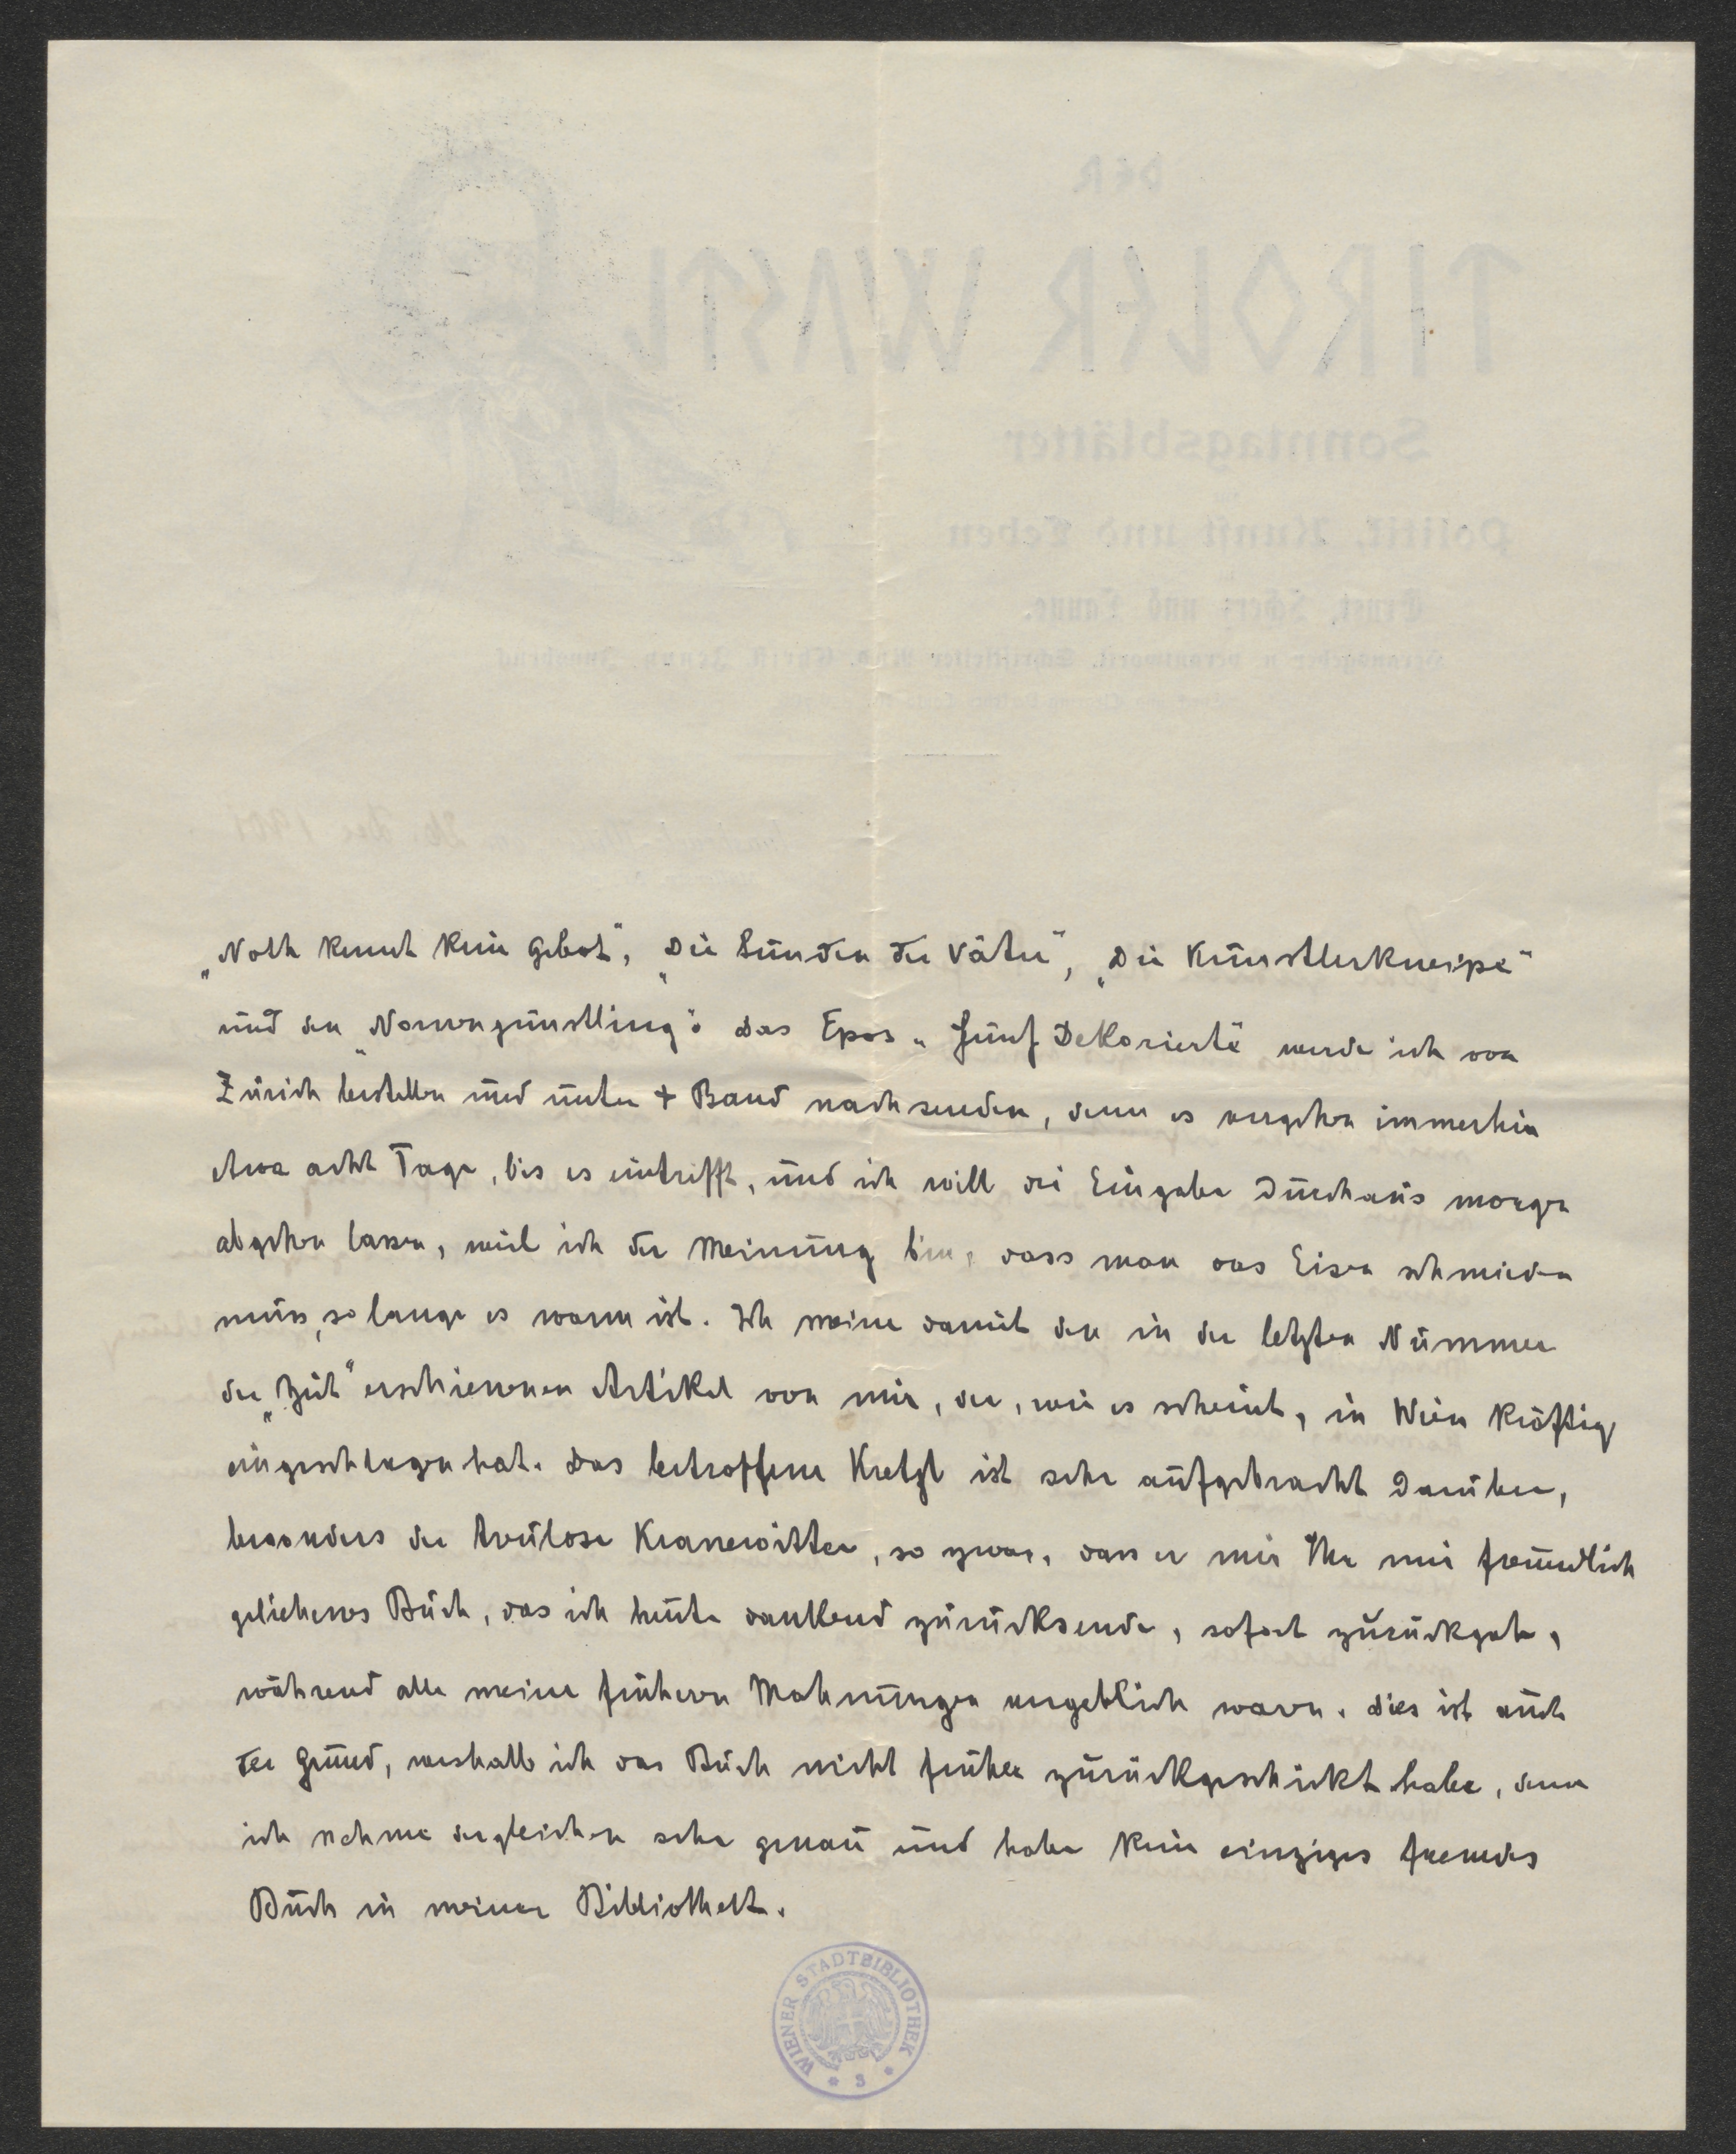 „Noth kennt kein Gebot“, „Die Sünden der Väter“, „Die Künstlerkneipe“
und den „Nornengünstling“. Das Epos „Fünf Dekorierte“ werde ich von
Zürich bestellen und unter + Band nachsenden, denn es vergehen immerhin
etwa acht Tage, bis es eintrifft, und ich will die Eingabe durchaus morgen
abgehen lassen, weil ich der Meinung bin, dass man das Eisen schmieden
muss, so lange es warm ist. Ich meine damit den in der letzten Nummer
der „Zeit“ erschienenen Artikel von mir, der, wie es scheint, in Wien kräftig
eingeschlagen hat. Das betroffene Kretzl ist sehr aufgebracht darüber,
besonders der treulose Kranewitter, so zwar, dass er mir Ihr mir freundlich
geliehenes Buch, das ich heute dankend zurücksende, sofort zurückgab,
während alle meine früheren Mahnungen vergeblich waren. Dies ist auch
der Grund, weshalb ich das Buch nicht früher zurückgeschickt habe, denn
ich nehme dergleichen sehr genau und habe kein einziges fremdes
Buch in meiner Bibliothek.
WIENER STADTBIBLIOTHEK
* 3 *